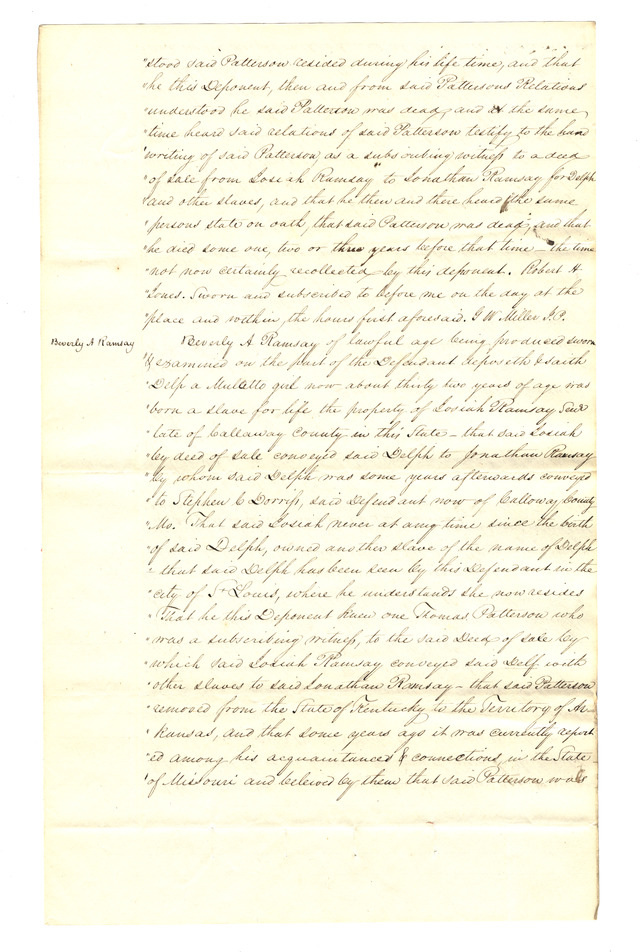 "stood said Patterson resided during his life time, and that
"he this Deponent, then and from said Pattersons Relations
"understood he said Patterson was dead, and at the same
"time heard said relations of said Patterson testify to the hand
"writing of said Patterson, as a subscribing witness to a deed
"of sale from Josiah Ramsay to Jonathan Ramsay for Delph
"and other slaves, and that he then and there heard the same
"persons state on oath, that said Patterson, was dead, and that
"he died some one, two or three years before that time – the time
"not now certainly recollected by this deponent. Robert A
"Jones. Sworn and subscribed to before me on the day at the
"place and within, the hours first aforesaid. G W Miller J.P.
Beverly A Ramsay
Beverly A Ramsay of lawful age being produced sworn
"& examined on the part of the Defendant deposeth & saith
"Delp a Mulatto girl now about thirty two years of age was
"born a slave for life the property of Josiah Ramsay Senr
"late of Callaway County in this State – that said Josiah
"by deed of sale conveyed said Delph to Jonathan Ramsay
"by whom said Delph was some years afterwards conveyed
"to Stephen C Dorriss, said Defendant now of Calloway County
"Mo. That said Josiah never at any time since the birth
"of said Delph, owned another slave of the name of Delph
"– that said Delph has been seen by this Defendant in the
"city of St Louis, where he understands she now resides
"That he this Deponent knew one Thomas Patterson who
"was a subscribing witness, to the said Deed of sale by
"which said Josiah Ramsay conveyed said Delf with
"other slaves to said Jonathan Ramsay – that said Patterson
"removed from the State of Kentucky to the Territory of Ar-
"kansas, and that some years ago it was currently report
"ed among his acquaintances & connections, in the State
"of Missouri and beleived by them that said Patterson was